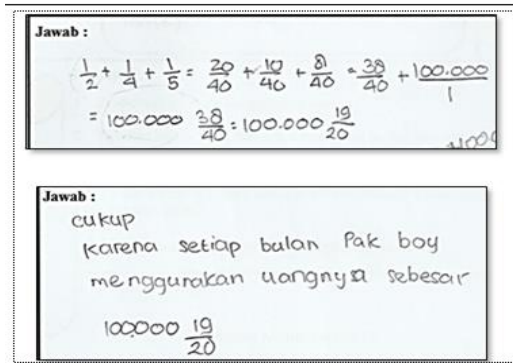 Jawab :
1/2 + 1/4 + 1/5 = 20/40 + 10/40 + 8/40 = 38/40 + 100.000/1
= 100.000 38/40 = 100.000 19/20
Jawab :
cukup
karena setiap bulan Pak boy
menggunakan uangnya sebesar
100.000 19/20